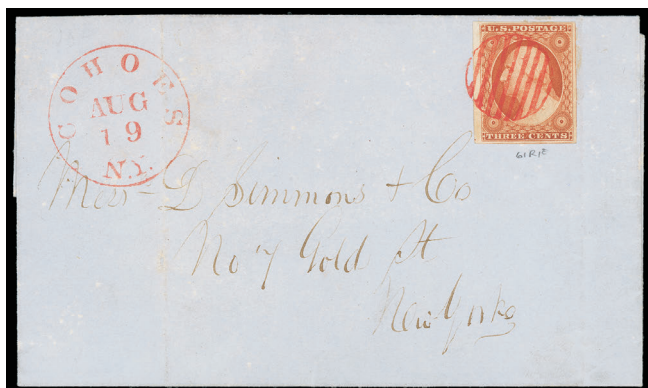 COHOES
AUG
19
N.Y.
U.S. POSTAGE
THREE CENTS
61R1E
Mess D Simmons + Co
No 7 Gold St
New York